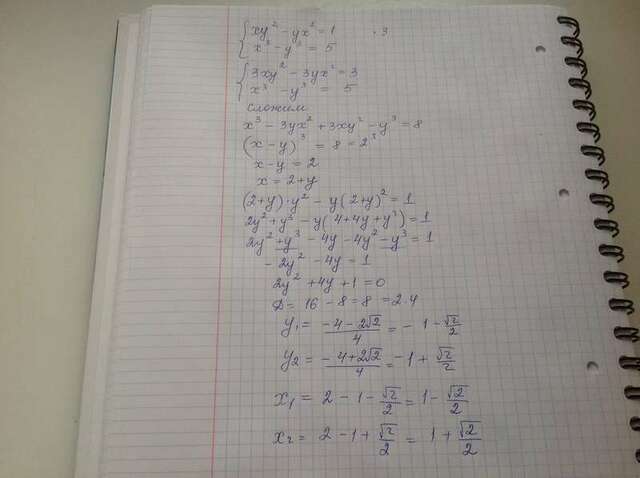 xy² - yx² = 1 · 3
x³ - y³ = 5
3xy² - 3yx² = 3
x³ - y³ = 5
Сложим
x³ - 3yx² + 3xy² - y³ = 8
(x - y)³ = 8 = 2³
x - y = 2
x = 2 + y
(2+y)·y² - y(2+y)² = 1
2y² + y³ - y(4 + 4y + y²) = 1
2y² + y³ - 4y - 4y² - y³ = 1
- 2y² - 4y = 1
2y² + 4y + 1 = 0
D = 16 - 8 = 8 = 2·4
y₁ = (-4 - 2√2)/4 = -1 - √2/2
y₂ = (-4 + 2√2)/4 = -1 + √2/2
x₁ = 2 - 1 - √2/2 = 1 - √2/2
x₂ = 2 - 1 + √2/2 = 1 + √2/2